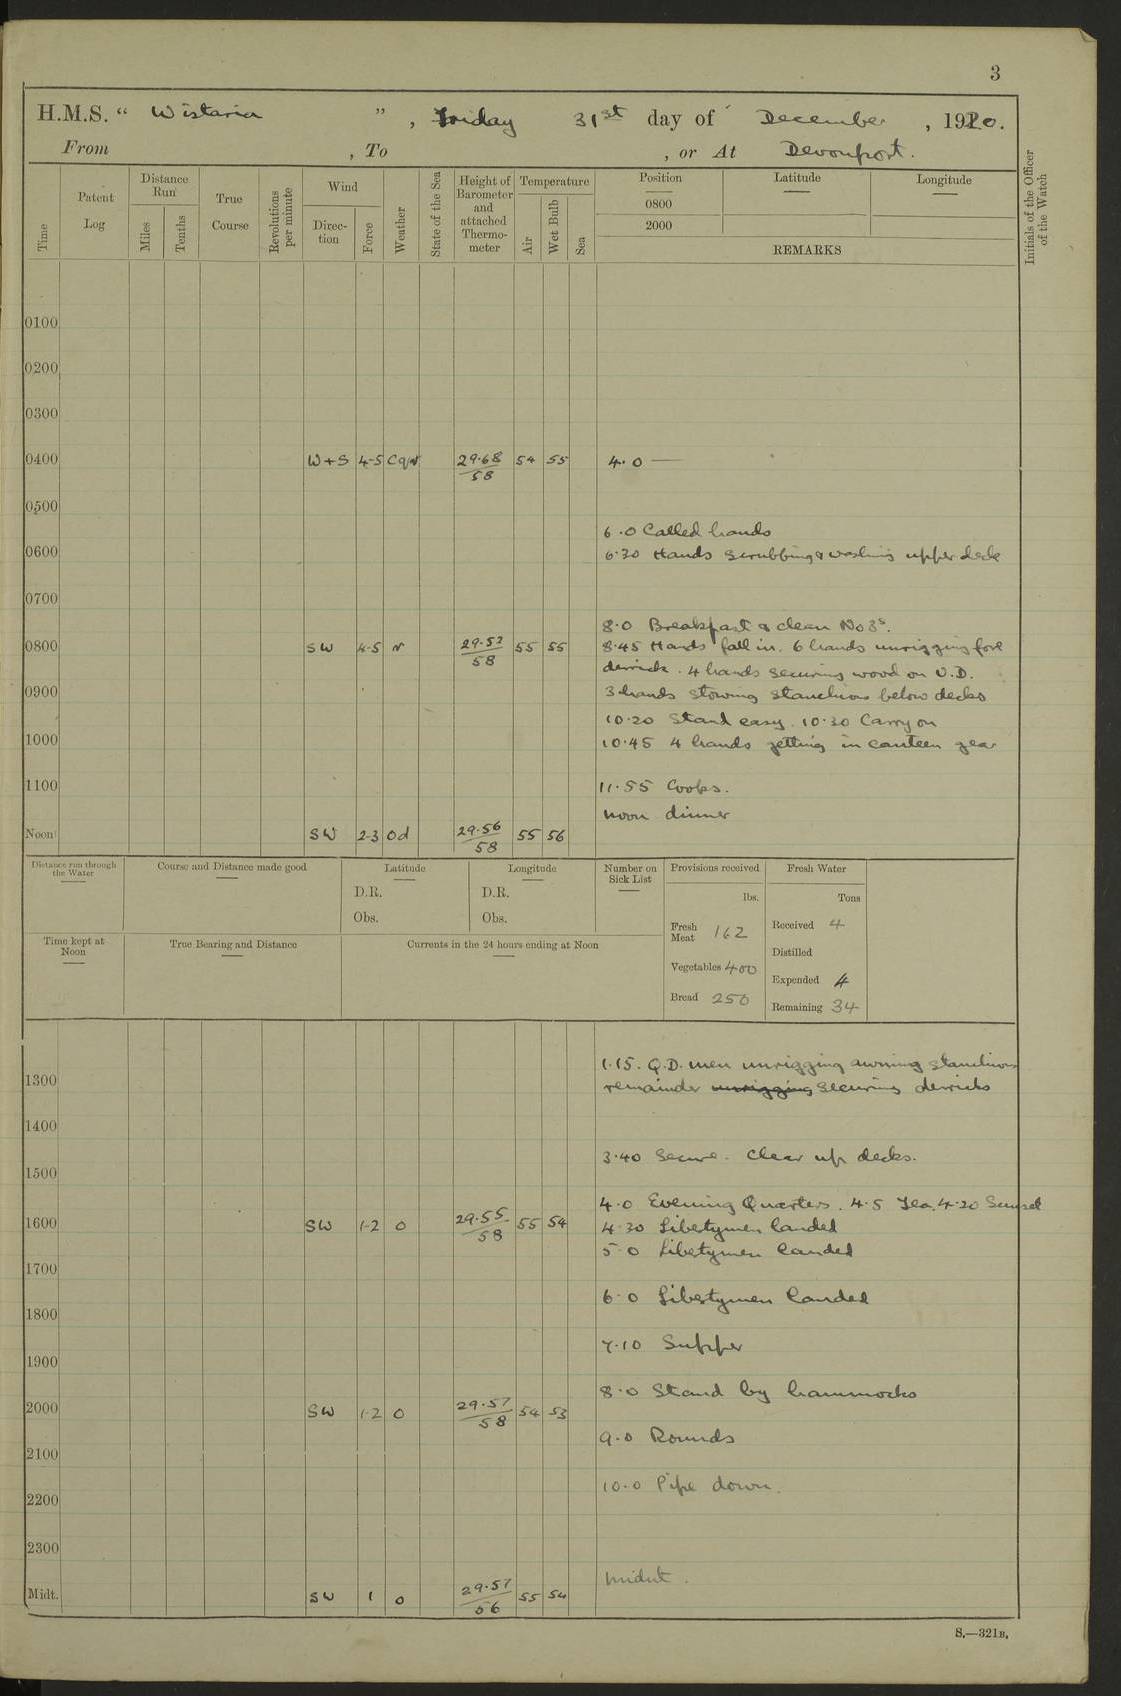 3
H.M.S. " Wistaria ", Friday 31st day of December, 1920.
From , To , or At Devonport.
Time
Patent Log
Distance Run
Miles
Tenths
True Course
Revolutions per minute
Wind
Direction
Force
Weather
State of the Sea
Height of Barometer and attached Thermometer
Temperature
Air
Wet Bulb
Sea
Position
0800
2000
Latitude
Longitude
REMARKS
Initials of the Officer of the Watch
0100
0200
0300
0400 W+S 4-5 29.68/58 54 55 4.0 —
0500
6.0 Called hands
0600 6.30 Hands scrubbing & washing upper deck
0700
8.0 Breakfast & clean No 3s.
0800 SW 4-5 r 29.52/58 55 55 8.45 Hands fall in. 6 hands unrigging fore
derrick. 4 hands securing wood on U.D.
0900 3 hands stowing stanchions below decks
10.20 Stand easy. 10.30 Carry on
1000 10.45 4 hands getting in canteen gear
1100 11.55 Cooks.
noon dinner
Noon SW 2-3 od 29.56/58 55 56
Distance run through the Water
Course and Distance made good
Latitude
D.R.
Obs.
Longitude
D.R.
Obs.
Number on Sick List
Provisions received
lbs.
Fresh Meat 162
Vegetables 400
Bread 250
Fresh Water
Tons
Received 4
Distilled
Expended 4
Remaining 34
Time kept at Noon
True Bearing and Distance
Currents in the 24 hours ending at Noon
1.15. Q.D. men unrigging awning stanchions
1300 remainder unrigging securing derricks
1400
3.40 Secure. Clear up decks.
1500
4.0 Evening Quarters. 4.5 Tea. 4.20 Sunset
1600 SW 1-2 o 29.55/58 55 54 4.30 Libertymen landed
5.0 Libertymen landed
1700
6.0 Libertymen landed
1800
7.10 Supper
1900
8.0 Stand by hammocks
2000 SW 1-2 o 29.57/58 54 53
9.0 Rounds
2100
10.0 Pipe down.
2200
2300
midnt.
Midt. SW 1 o 29.57/56 55 54
S.—321B.